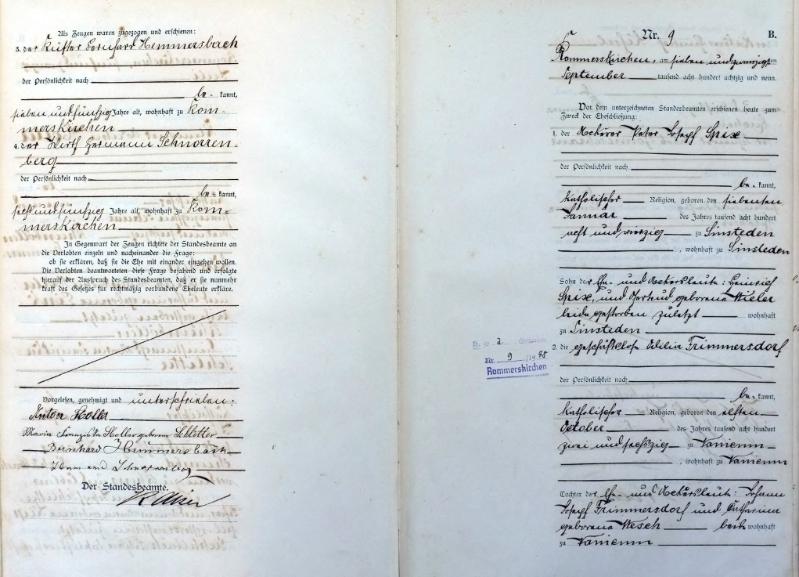 Als Zeugen waren zugezogen und erschienen:
3. der Küster Bernhard Hemmersbach
der Persönlichkeit nach
be- kannt,
sieben und fünfzig Jahre alt, wohnhaft zu Rom-
merskirchen
4. der Wirth Hermann Schnorren-
berg
der Persönlichkeit nach
be- kannt,
sechs und fünfzig Jahre alt, wohnhaft zu Rom-
merskirchen
In Gegenwart der Zeugen richtete der Standesbeamte an
die Verlobten einzeln und nacheinander die Frage:
ob sie erklären, daß sie die Ehe mit einander eingehen wollen.
Die Verlobten beantworteten diese Frage bejahend und erfolgte
hierauf der Ausspruch des Standesbeamten, daß er sie nunmehr
kraft des Gesetzes für rechtmäßig verbundene Eheleute erkläre.
Vorgelesen, genehmigt und unterschrieben:
Anton Holler
Maria Franziska Holler geborene Schlötter
Bernhard Hemmersbach
Hermann Schnorrenberg
Der Standesbeamte.
Nr. 9
B.
Rommerskirchen, am sieben und zwanzigsten
September tausend acht hundert achtzig und neun
Vor dem unterzeichneten Standesbeamten erschienen heute zum
Zweck der Eheschließung:
1. der Ackerer Peter Joseph Spix
der Persönlichkeit nach
be- kannt,
katholischer Religion, geboren den siebenten
Januar des Jahres tausend acht hundert
acht und vierzig zu Sinsteden
, wohnhaft zu Sinsteden
Sohn der Ehe- und Ackersleut: Heinrich
Spix, und Gertrud geborene Wieler
beide gestorben zuletzt wohnhaft
zu Sinsteden
2. die geschäftslose Trimmersdorf
der Persönlichkeit nach
be- kannt,
katholischer Religion, geboren den elften
October des Jahres tausend acht hundert
zwei und sechszig zu Vanikum
, wohnhaft zu Vanikum
Tochter der Ehe- und Ackersleut: Johann
Joseph Trimmersdorf und Catharina
geborene Wesch wohnhaft
zu Vanikum
Nr. 9
Rommerskirchen